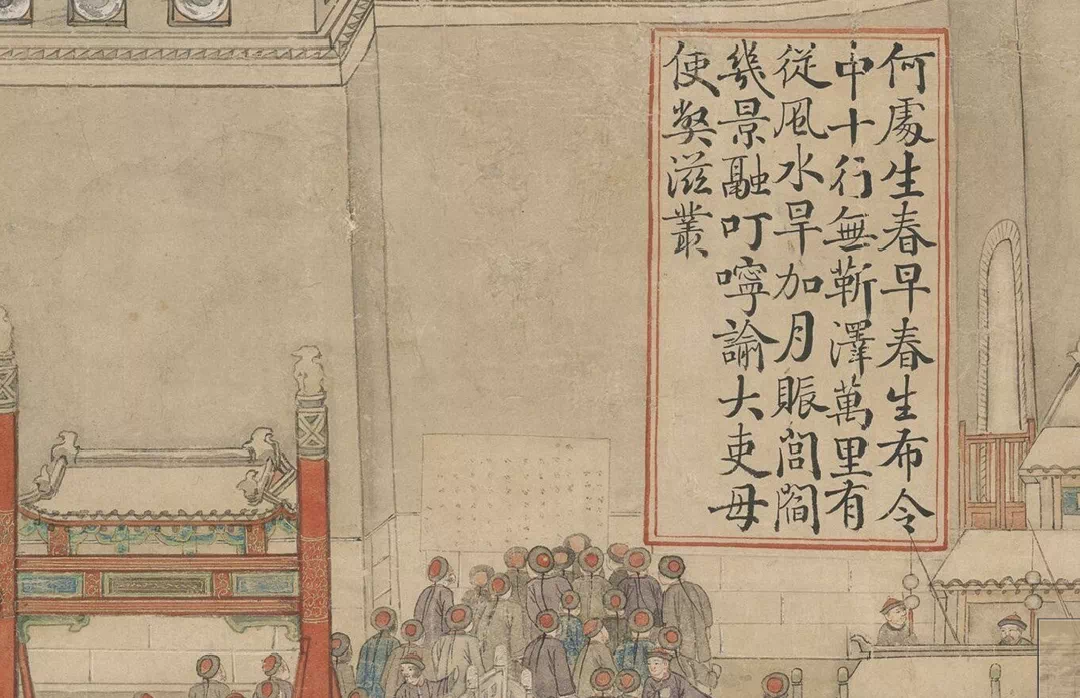 何處生春早春生布令
中十行無靳澤萬里有
從風水旱加月賑閭閻
幾景融叮嚀諭大吏毋
使獘滋叢